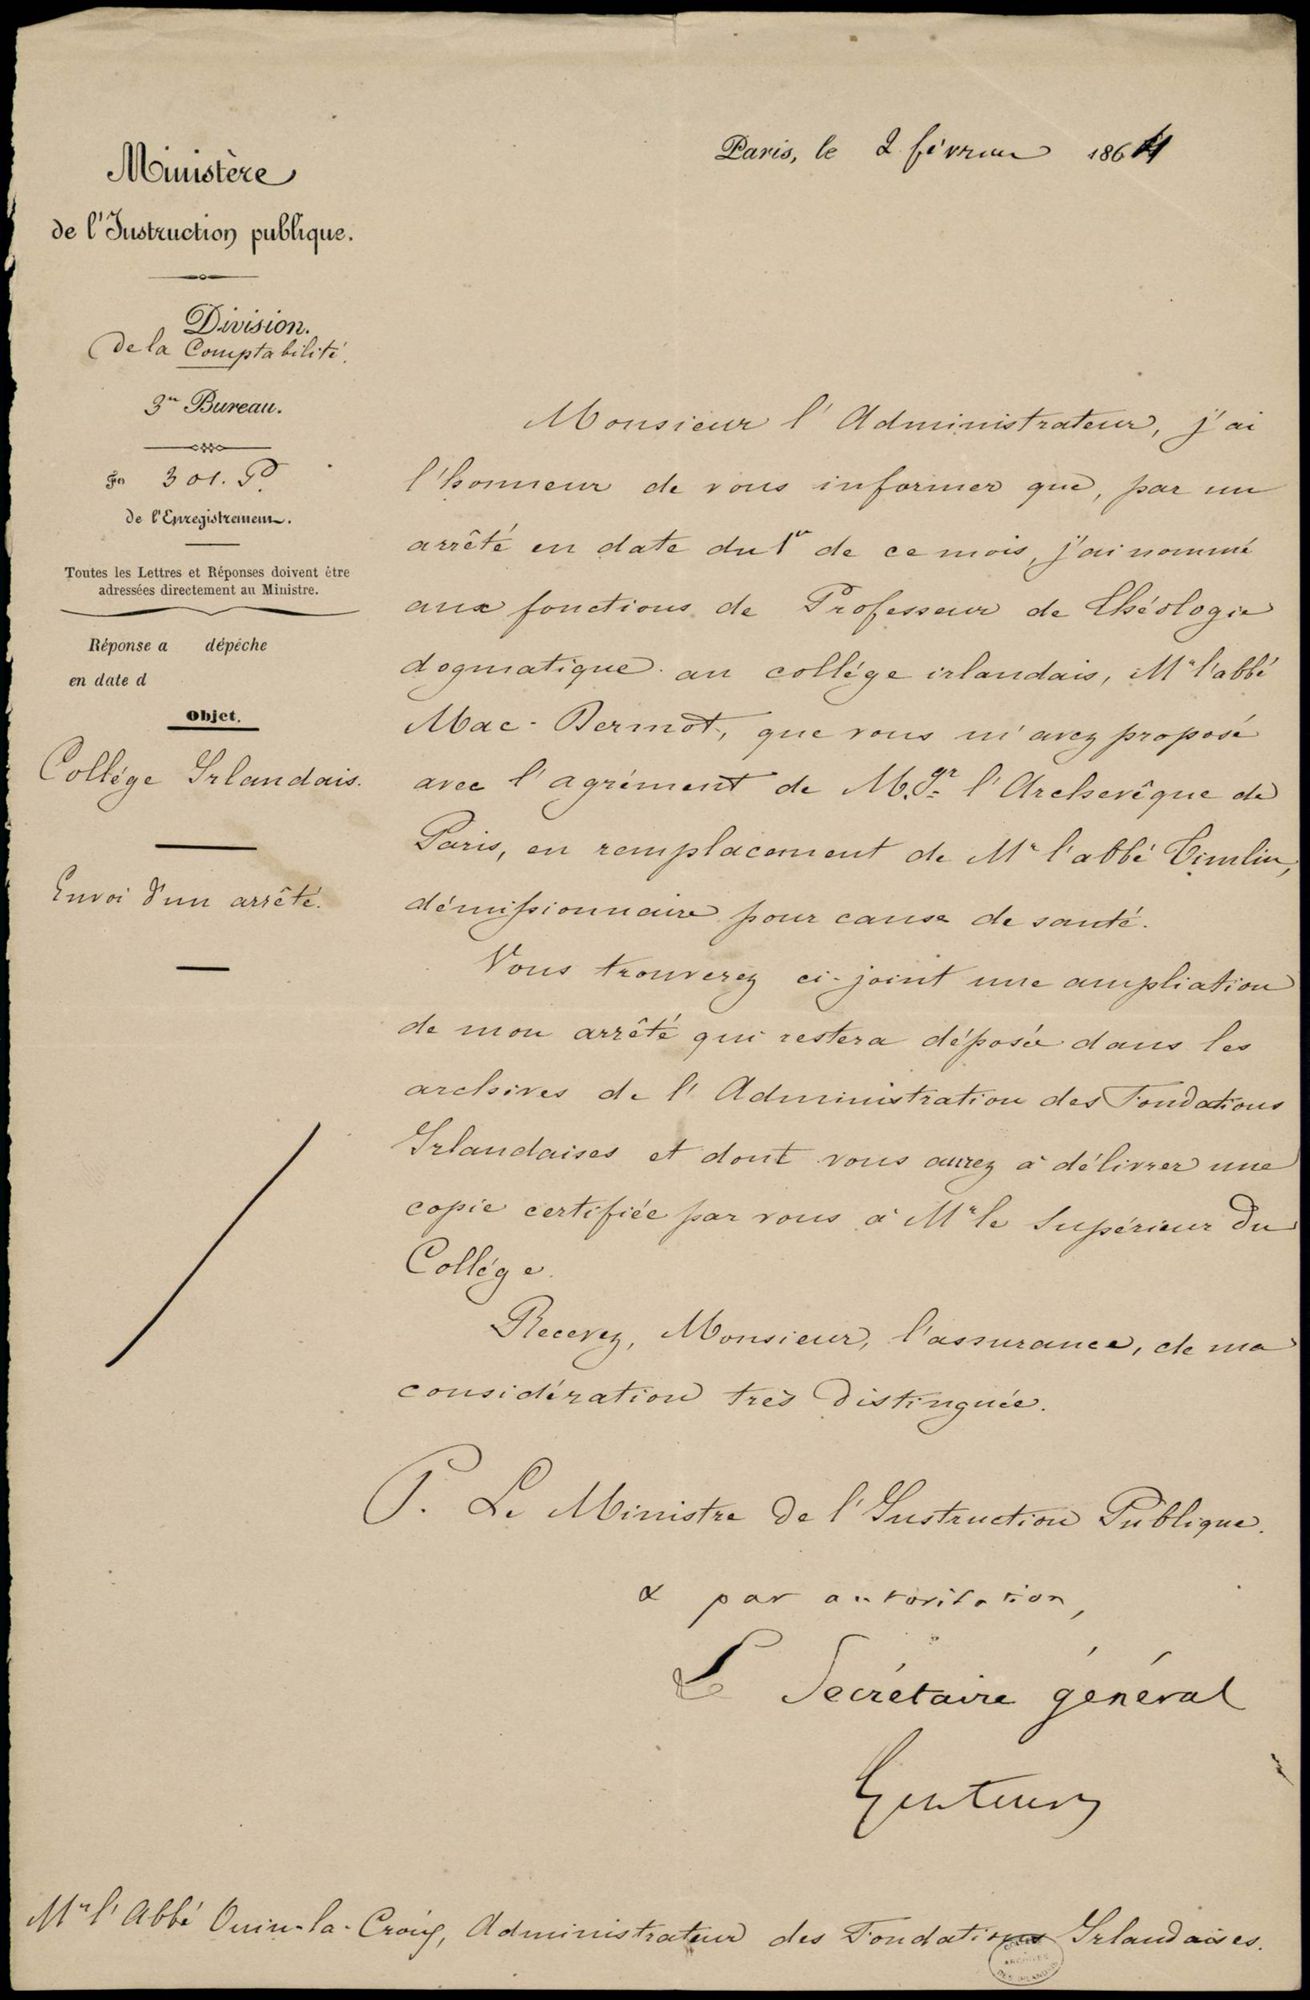 Paris, le 2 février 1864
Ministère
de l'Instruction publique.
Division.
de la Comptabilité.
3me Bureau.
Fo 301. P.
de l'Enregistrement.
Toutes les Lettres et Réponses doivent être
adressées directement au Ministre.
Réponse a dépêche
en date d
Objet.
Collége Irlandais.
Envoi d'un arrêté.
Monsieur l'Administrateur, j'ai
l'honneur de vous informer que, par un
arrêté en date du 1er de ce mois, j'ai nommé
aux fonctions de Professeur de Théologie
dogmatique au collége irlandais, Mr l'abbé
Mac-Dermot, que vous m'avez proposé
avec l'agrément de Mgr l'Archevêque de
Paris, en remplacement de Mr l'abbé Timlin,
démissionnaire pour cause de santé.
Vous trouverez ci-joint une ampliation
de mon arrêté qui restera déposée dans les
archives de l'Administration des Fondations
Irlandaises et dont vous aurez à délivrer une
copie certifiée par vous à Mr le Supérieur du
Collége.
Recevez, Monsieur, l'assurance, de ma
considération très distinguée.
P. Le Ministre de l'Instruction Publique.
& par autorisation,
Le Secrétaire général
Mr l'Abbé Ouin-la-Croix, Administrateur des Fondations Irlandaises.
ARCHIVES
DES IRLANDAIS